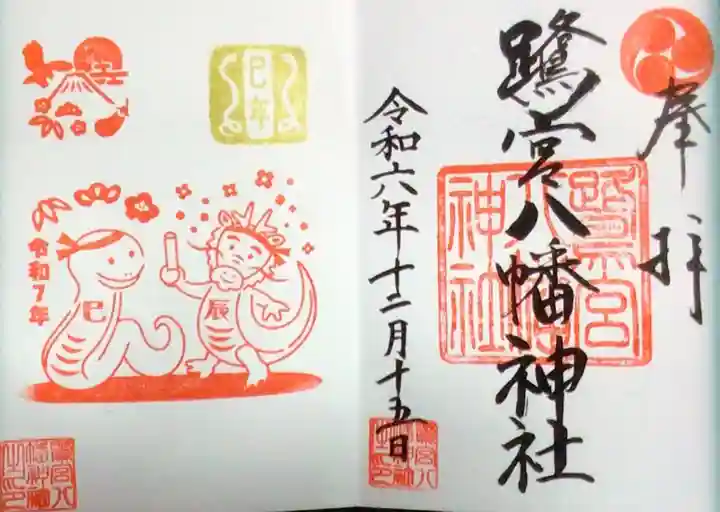 奉拝
鷺宮八幡神社
令和六年十二月十五日
鷺宮八幡神社
巳年
令和7年
巳
辰